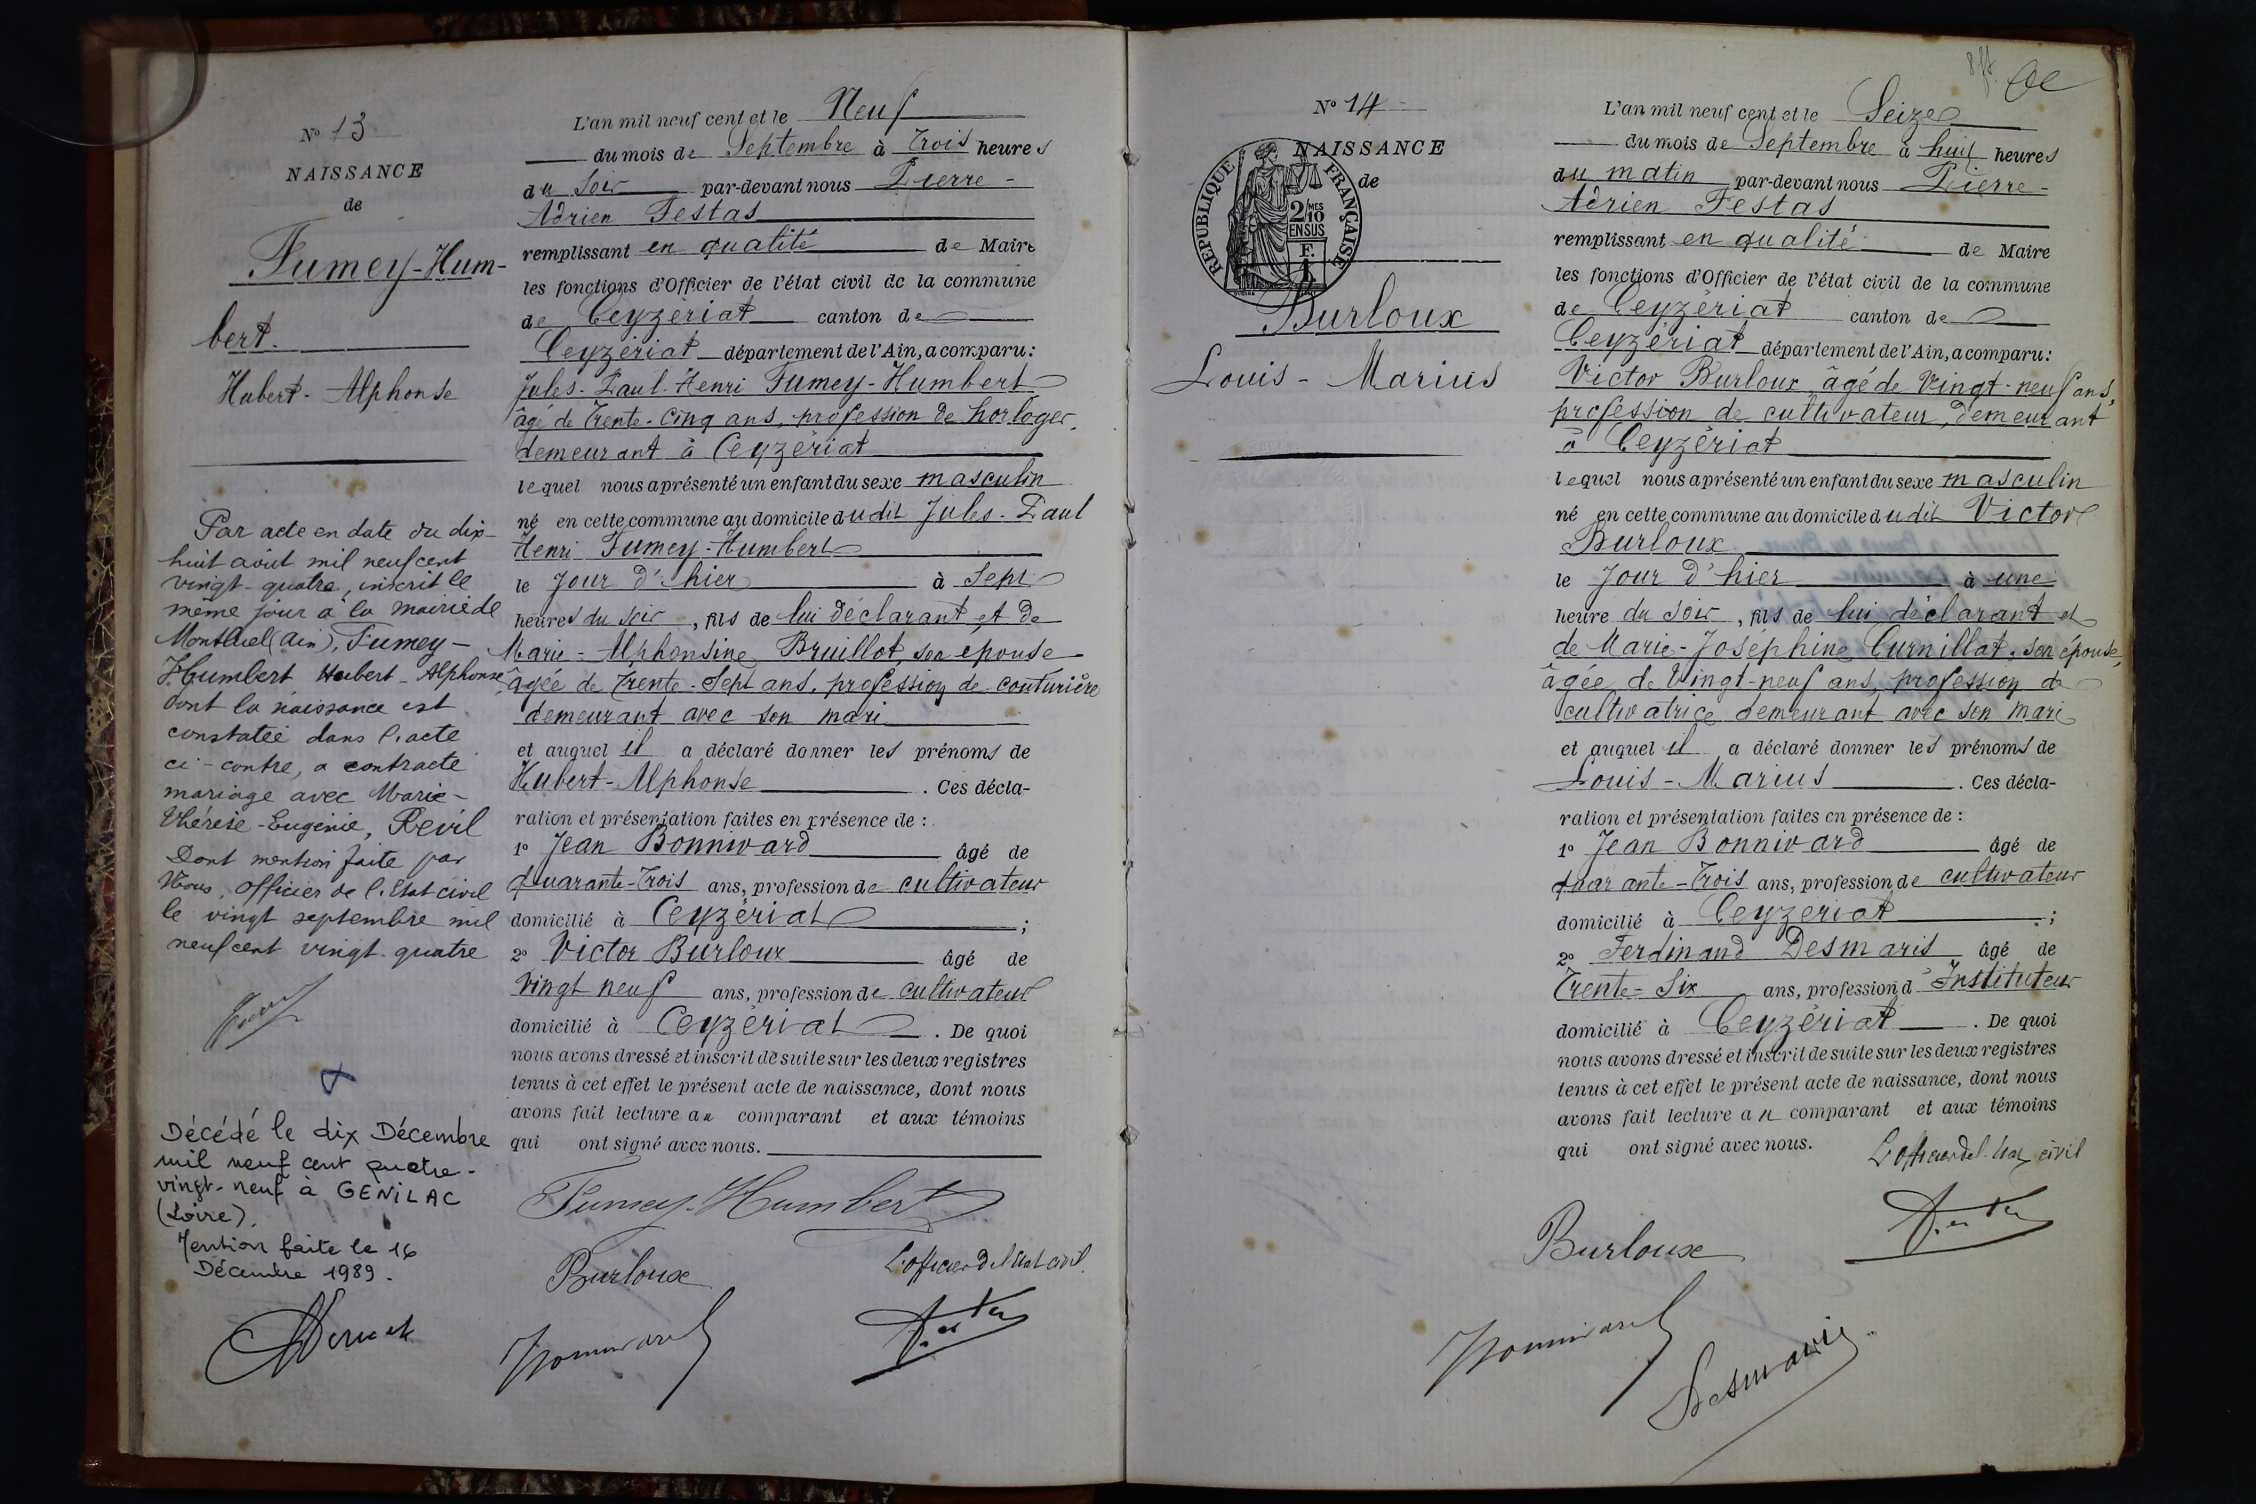 N° 13
NAISSANCE
de
Fumey-Hum-
bert.
Hubert - Alphonse
Par acte en date du dix-
huit août mil neuf cent
vingt-quatre, inscrit le
même jour à la mairie de
Montluel (Ain), Fumey-
Humbert Hubert-Alphonse,
dont la naissance est
constatée dans l'acte
ci-contre, a contracté
mariage avec Marie-
Thérèse-Eugénie, Revil
Dont mention faite par
Nous, officier de l'Etat civil
le vingt septembre mil
neuf cent vingt-quatre
Décédé le dix Décembre
mil neuf cent quatre-
vingt-neuf à GENILAC
(Loire).
Mention faite le 16
Décembre 1989.
L'an mil neuf cent et le Neuf
du mois de Septembre à Trois heures
du Soir par-devant nous Pierre-
Adrien Festas
remplissant en qualité de Maire
les fonctions d'Officier de l'état civil de la commune
de Ceyzériat canton de
Ceyzériat département de l'Ain, a comparu:
Jules-Paul-Henri Fumey-Humbert
âgé de Trente-Cinq ans, profession de horloger,
demeurant à Ceyzériat
lequel nous a présenté un enfant du sexe masculin
né en cette commune au domicile dudit Jules-Paul
Henri Fumey-Humbert
le Jour d'hier à Sept
heures du Soir, fils de lui déclarant et de
Marie-Alphonsine Bruillot, son épouse
âgée de Trente-Sept ans, profession de couturière
demeurant avec son mari
et auquel il a déclaré donner les prénoms de
Hubert-Alphonse. Ces décla-
ration et présentation faites en présence de :
1° Jean Bonnivard âgé de
Quarante-Trois ans, profession de cultivateur
domicilié à Ceyzériat ;
2° Victor Burloux âgé de
Vingt neuf ans, profession de cultivateur
domicilié à Ceyzériat. De quoi
nous avons dressé et inscrit de suite sur les deux registres
tenus à cet effet le présent acte de naissance, dont nous
avons fait lecture au comparant et aux témoins
qui ont signé avec nous.
Fumey-Humbert
Burloux
L'officier de l'état civil
Bonnivard
Festas
N° 14
NAISSANCE
de
REPUBLIQUE FRANÇAISE
2/10 MES
EN SUS
F.
1
Burloux
Louis - Marius
L'an mil neuf cent et le Seize
du mois de Septembre à huit heures
du matin par-devant nous Pierre-
Adrien Festas
remplissant en qualité de Maire
les fonctions d'Officier de l'état civil de la commune
de Ceyzériat canton de
Ceyzériat département de l'Ain, a comparu:
Victor Burloux, âgé de Vingt-neuf ans,
profession de cultivateur, demeurant
à Ceyzériat
lequel nous a présenté un enfant du sexe masculin
né en cette commune au domicile dudit Victor
Burloux
le Jour d'hier à une
heure du Soir, fils de lui déclarant et
de Marie-Joséphine Curnillat, son épouse,
âgée de Vingt-neuf ans, profession de
cultivatrice demeurant avec son mari
et auquel il a déclaré donner les prénoms de
Louis-Marius. Ces décla-
ration et présentation faites en présence de :
1° Jean Bonnivard âgé de
quarante-Trois ans, profession de cultivateur
domicilié à Ceyzériat ;
2° Ferdinand Desmaris âgé de
Trente-Six ans, profession d'Instituteur
domicilié à Ceyzériat. De quoi
nous avons dressé et inscrit de suite sur les deux registres
tenus à cet effet le présent acte de naissance, dont nous
avons fait lecture au comparant et aux témoins
qui ont signé avec nous.
L'officier de l'état civil
Burloux
Festas
Bonnivard
Desmaris